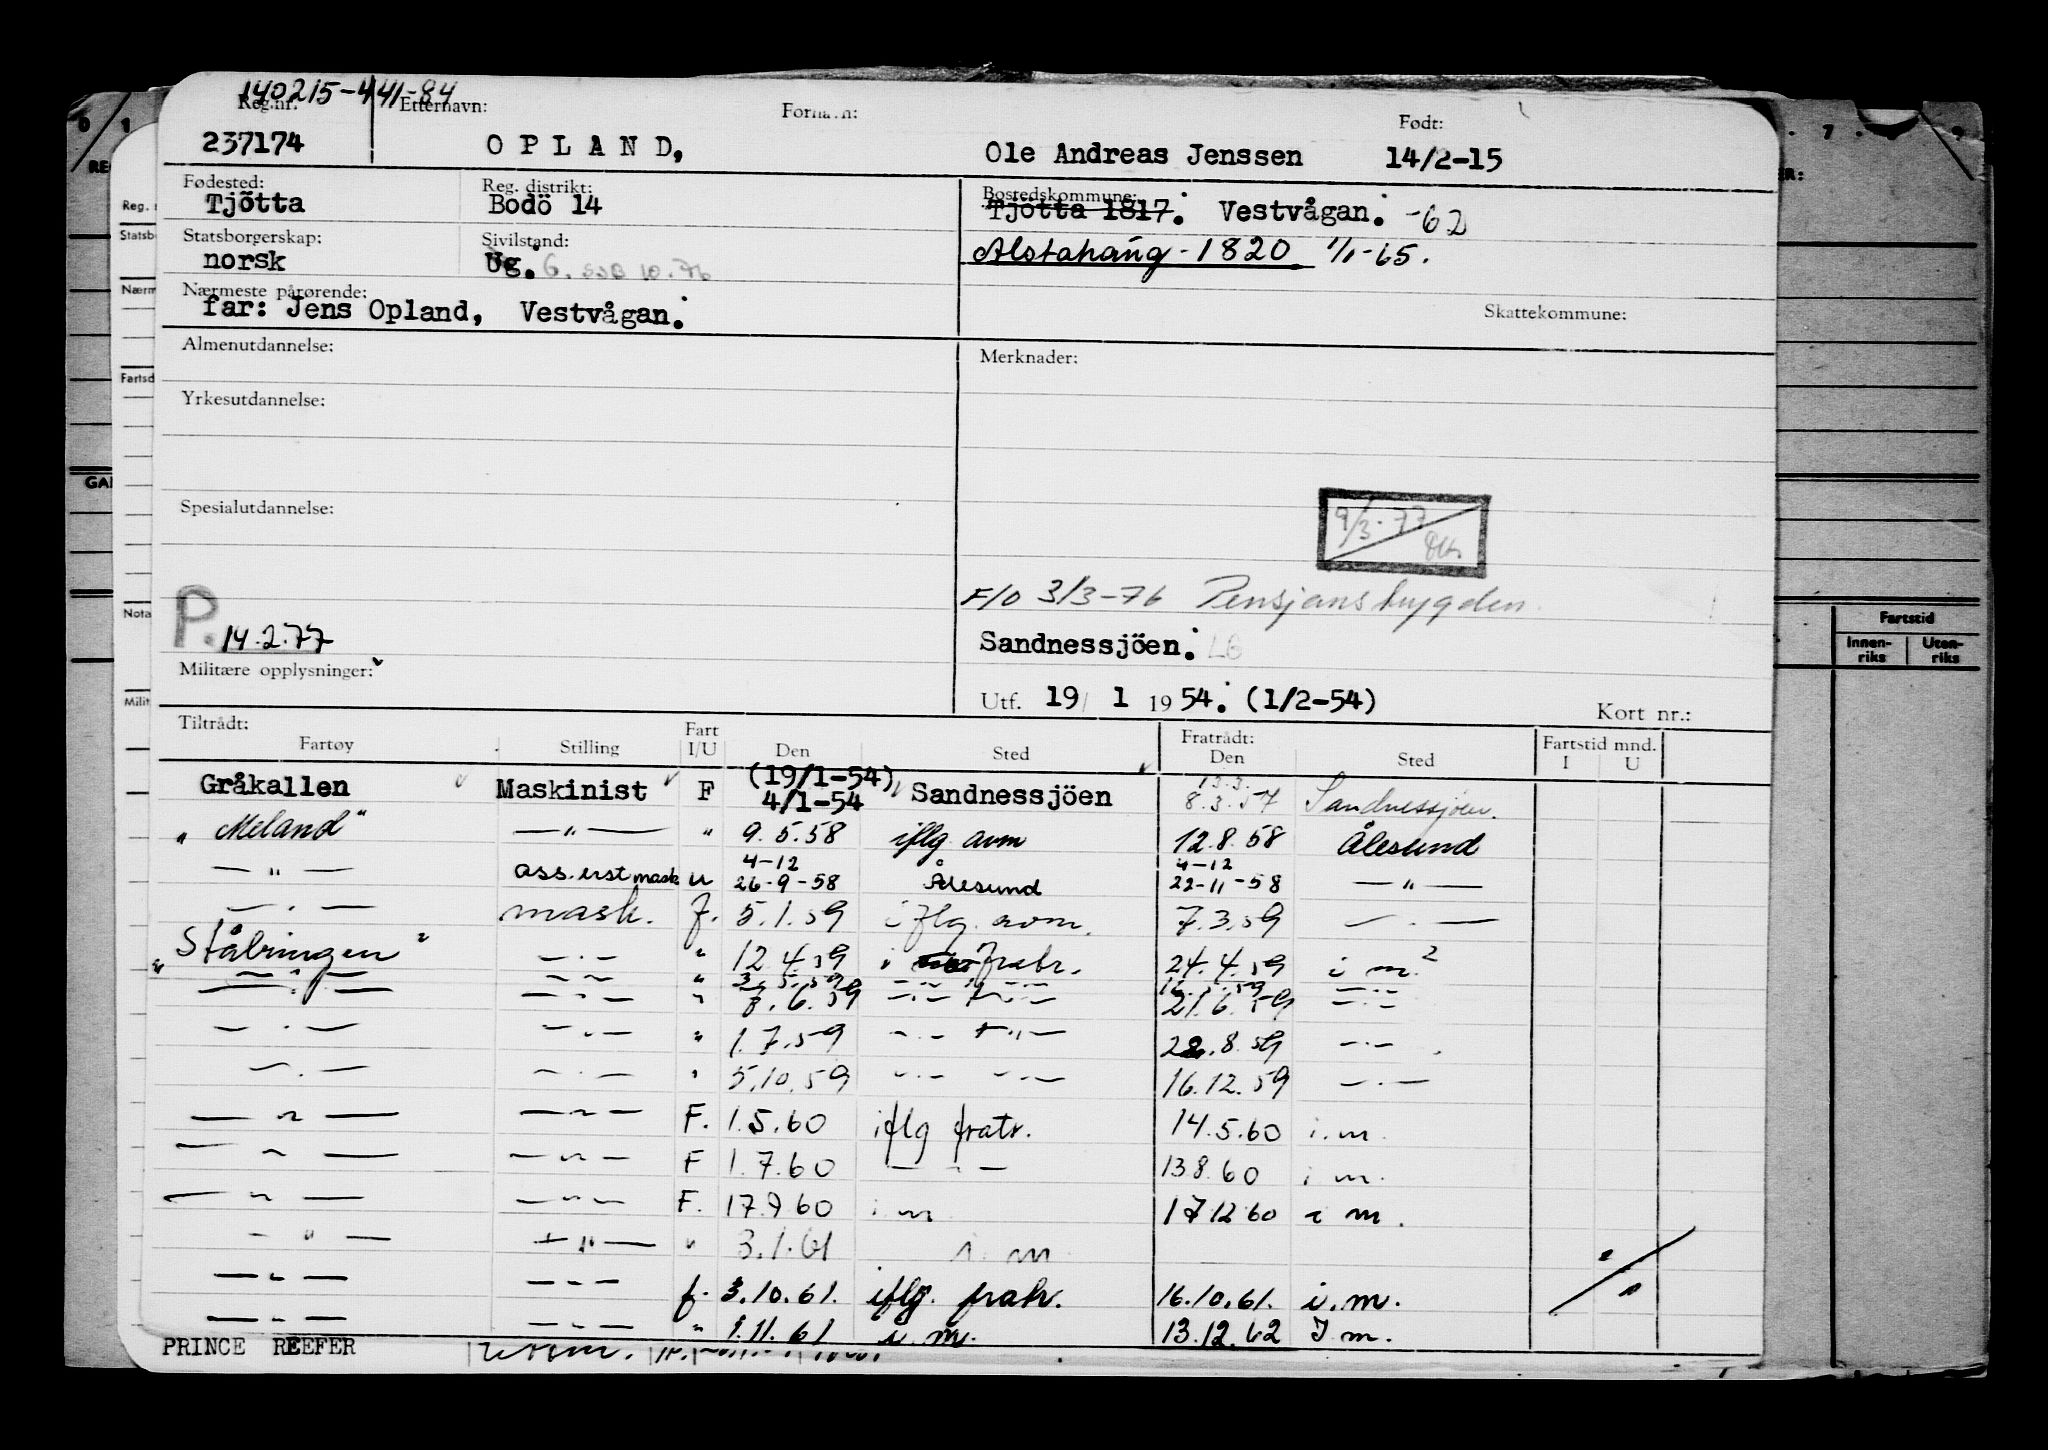 140215-441-84
Reg.nr. Etternavn: Fornavn: Født:
237174 OPLAND, Ole Andreas Jenssen 14/2-15
Fødested: Reg. distrikt: Bostedskommune:
Tjõtta Bodö 14 Tjõtta 1817. Vestvågan. -62
Statsborgerskap: Sivilstand: Alstahaug - 1820 1/1-65.
norsk Ug. G. SSB 10.76
Nærmeste pårørende: Skattekommune:
far: Jens Opland, Vestvågan.
Almenutdannelse: Merknader:
Yrkesutdannelse:
Spesialutdannelse:
9/3-77
F/O 3/3-76 Pensjonstrygden
P. 14.2.77
Sandnessjöen.
Militære opplysninger:
Utf. 19/ 1 19 54. (1/2-54) Kort nr.:
Tiltrådt: Fratrådt: Fartstid mnd.
Fartøy Stilling Fart I/U Den Sted Den Sted I U
Gråkallen Maskinist F (19/1-54) 4/1-54 Sandnessjöen 13.3. 8.3.57 Sandnessjöen.
"Meland" —"— " 9.5.58 iflg. avm 12.8.58 Ålesund
—"— ass. erst mask u 4-12 26-9-58 Ålesund 4-12 22-11-58 —"—
—"— mask. f. 5.1.59 iflg. avm. 7.3.59 —"—
"Stålringen" —"— " 12.4.59 i fratr. 24.4.59 i m.
—"— —"— " 3.5.59
—"— —"— " 8.6.59 —"— —"— 21.6.59 —"—
—"— —"— " 1.7.59 —"— —"— 28.8.59 —"—
—"— —"— " 5.10.59 —"— —"— 16.12.59 —"—
—"— —"— F. 1.5.60 iflg fratr. 14.5.60 i.m.
—"— —"— F 1.7.60 —"— 13.8.60 i m.
—"— —"— F. 17.9.60 i m 17.12.60 i m.
—"— —"— " 3.1.61 i. m
—"— —"— f. 3.10.61. iflg. fratr. 16.10.61. i.m.
—"— —"— " 1.11.61 i m. 13.12.62 I.m.
PRINCE REEFER
Fartstid
Innen-riks Uten-riks